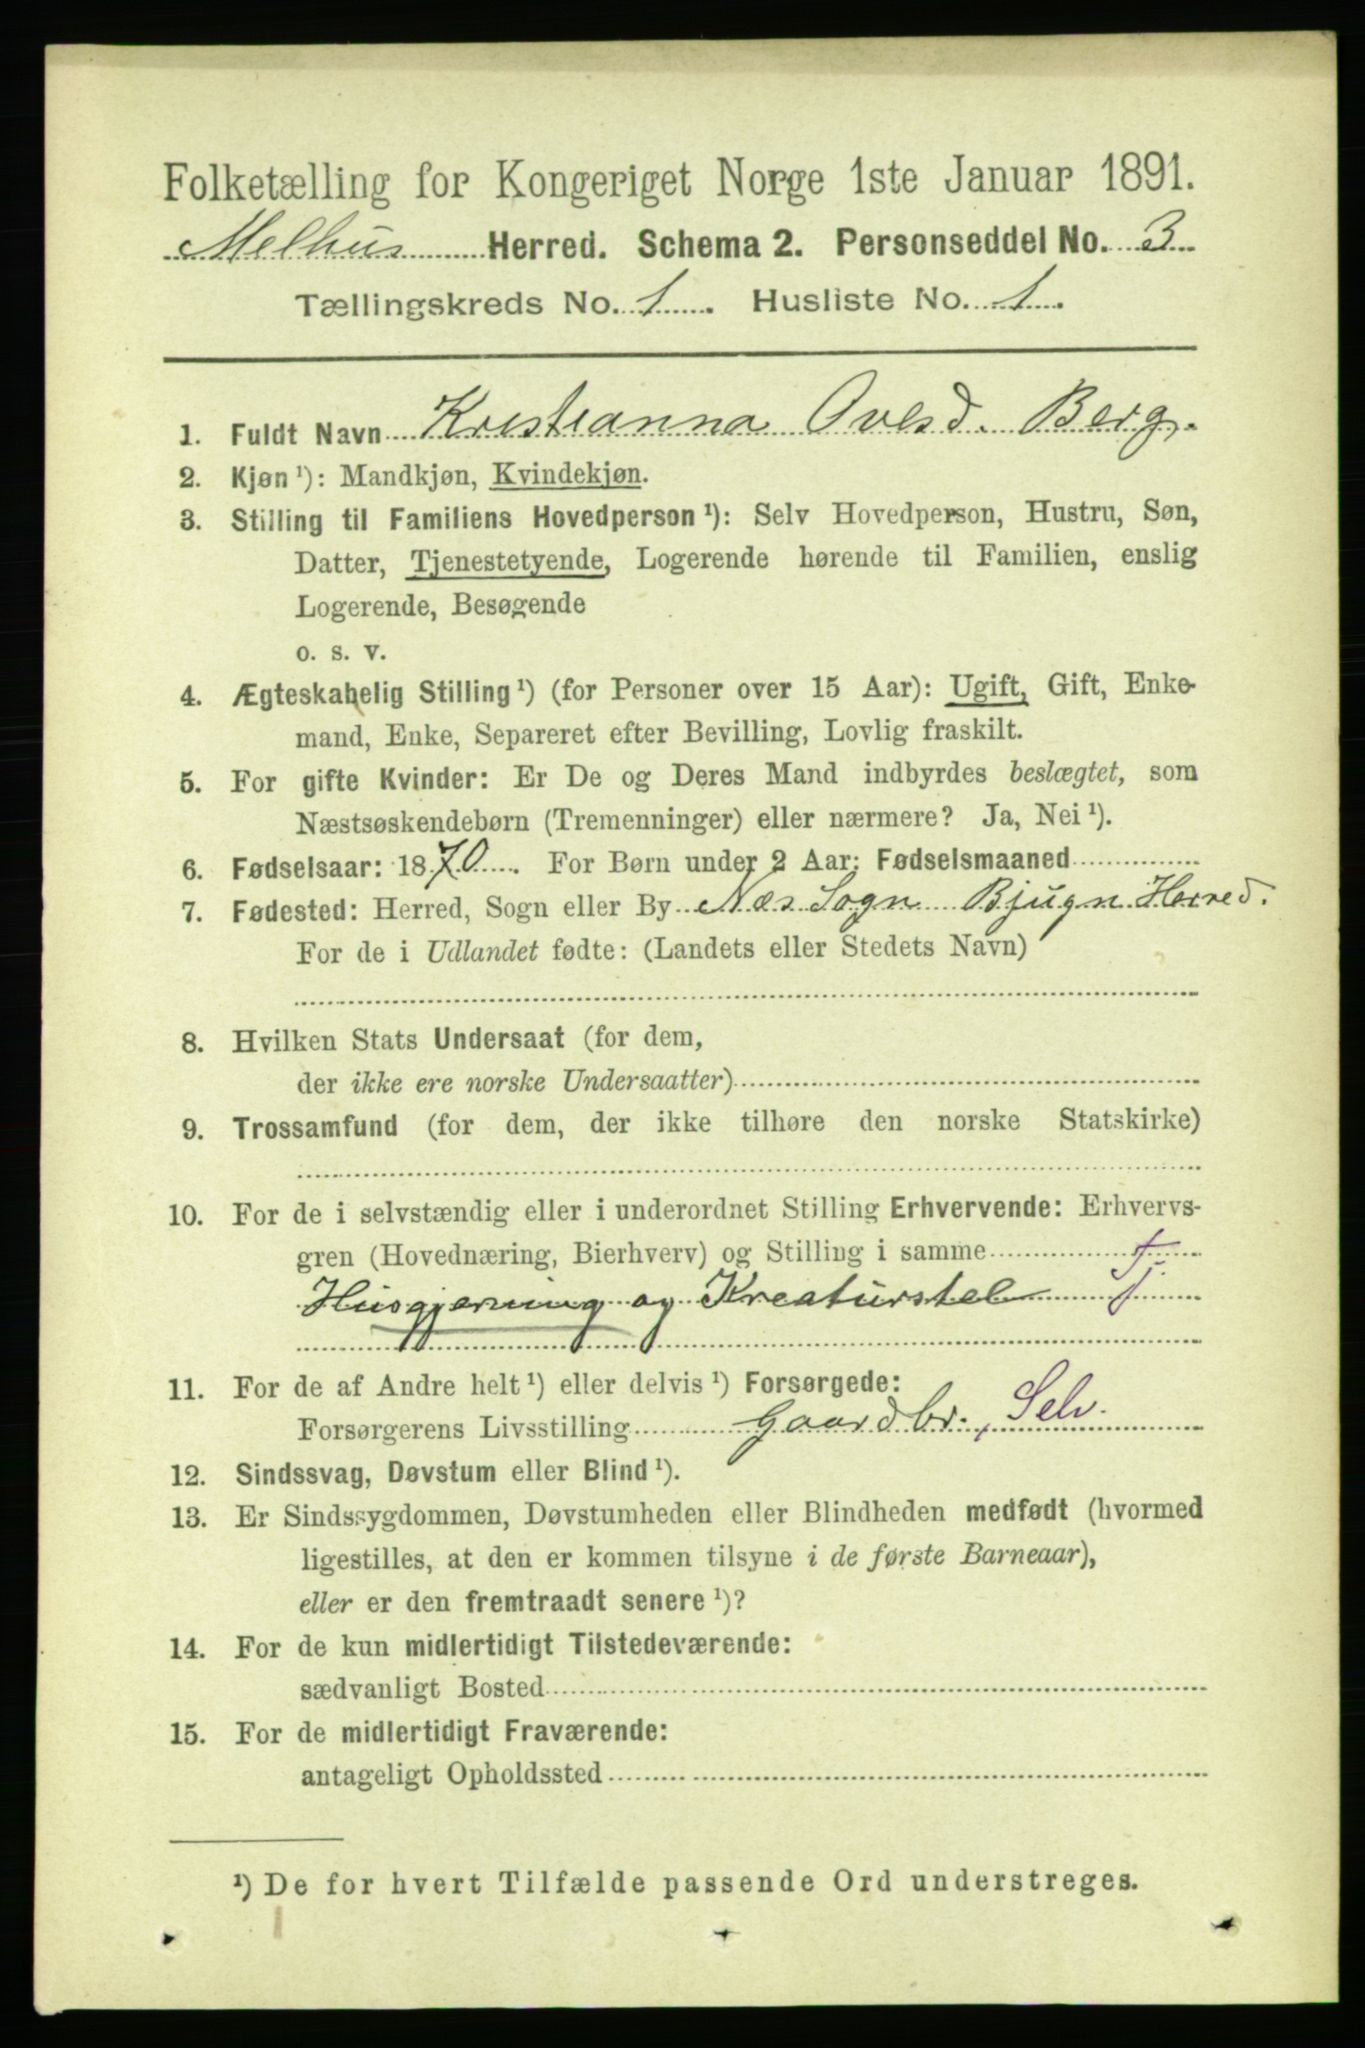 Folketælling for Kongeriget Norge 1ste Januar 1891.
Melhus Herred. Schema 2. Personseddel No. 3
Tællingskreds No. 1. Husliste No. 1.
1. Fuldt Navn Kristianna Ovesd. Berg.
2. Kjøn ¹): Mandkjøn, Kvindekjøn.
3. Stilling til Familiens Hovedperson ¹): Selv Hovedperson, Hustru, Søn,
Datter, Tjenestetyende, Logerende hørende til Familien, enslig
Logerende, Besøgende
o. s. v.
4. Ægteskabelig Stilling ¹) (for Personer over 15 Aar): Ugift, Gift, Enke-
mand, Enke, Separeret efter Bevilling, Lovlig fraskilt.
5. For gifte Kvinder: Er De og Deres Mand indbyrdes beslægtet, som
Næstsøskendebørn (Tremenninger) eller nærmere? Ja, Nei ¹).
6. Fødselsaar: 1870. For Børn under 2 Aar: Fødselsmaaned
7. Fødested: Herred, Sogn eller By Næs Sogn Bjugn Herred.
For de i Udlandet fødte: (Landets eller Stedets Navn)
8. Hvilken Stats Undersaat (for dem,
der ikke ere norske Undersaatter)
9. Trossamfund (for dem, der ikke tilhøre den norske Statskirke)
10. For de i selvstændig eller i underordnet Stilling Erhvervende: Erhvervs-
gren (Hovednæring, Bierhverv) og Stilling i samme
Husgjerning og Kreaturstel
11. For de af Andre helt ¹) eller delvis ¹) Forsørgede:
Forsørgerens Livsstilling Gaardbr., Selv.
12. Sindssvag, Døvstum eller Blind ¹).
13. Er Sindssygdommen, Døvstumheden eller Blindheden medfødt (hvormed
ligestilles, at den er kommen tilsyne i de første Barneaar),
eller er den fremtraadt senere ¹)?
14. For de kun midlertidigt Tilstedeværende:
sædvanligt Bosted
15. For de midlertidigt Fraværende:
antageligt Opholdssted
¹) De for hvert Tilfælde passende Ord understreges.